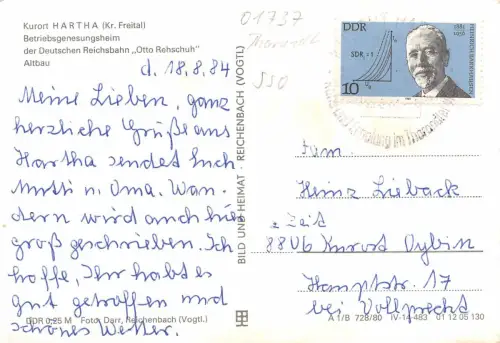 Kurort HARTHA (Kr. Freital)
Betriebsgenesungsheim
der Deutschen Reichsbahn „Otto Rehschuh"
Altbau
d. 18.8.84
Meine Lieben, ganz
herzliche Grüße aus
Hartha sendet Euch
Mutti u. Oma. Wan-
dern wird auch hier
groß geschrieben. Ich
hoffe, Ihr habt es
gut getroffen und
schönes Wetter.
DDR 0,25 M Foto: Darr, Reichenbach (Vogtl.)
BILD UND HEIMAT · REICHENBACH (VOGTL)
01737
Tharandt
550
DDR
SDR = 1
10
HEINRICH BARKHAUSEN
1881
1956
im Tharandter
Fam
Heinz Lieback
z. Zeit
8806 Kurort Oybin
Hauptstr. 17
bei Vollprecht
A 1/B 728/80 IV-14-483 01 12 05 130